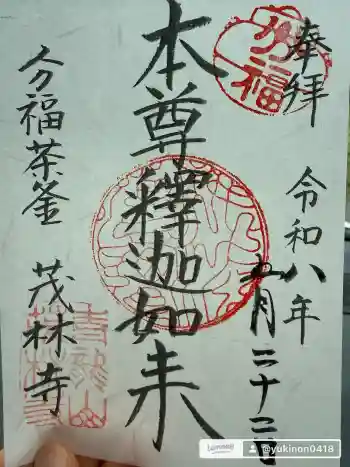 奉拝
分福
令和八年
月二十二日
本尊釋迦如来
分福茶釜 茂林寺
@yukinon0418